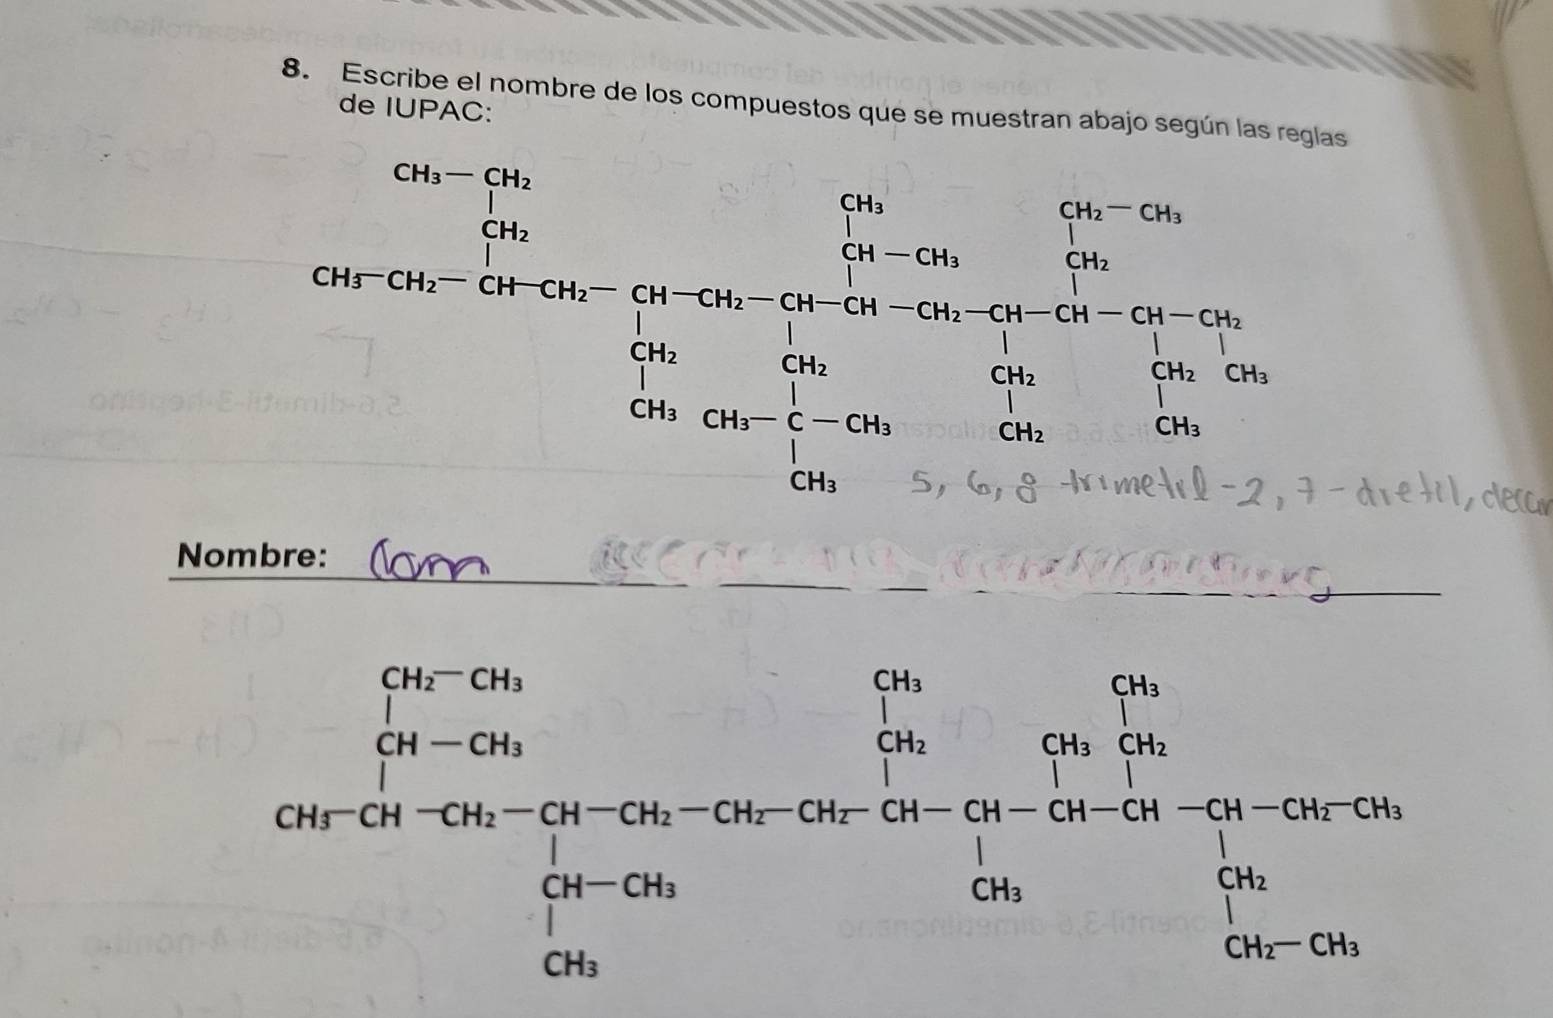 8. Escribe el nombre de los compuestos que se muestran abajo según las reglas
de IUPAC:
CH₃— CH₂
CH₃
CH₂ — CH₃
CH₂
CH — CH₃
CH₂
CH₃—CH₂— CH—CH₂— CH—CH₂—CH—CH —CH₂—CH—CH — CH—CH₂
CH₂ CH₂ CH₂ CH₂ CH₃
CH₃ CH₃— C — CH₃ CH₂ CH₃
CH₃
5, 6, 8 trimetil-2, 7-dietil,
Nombre:
CH₂—CH₃ CH₃ CH₃
CH — CH₃ CH₂ CH₃ CH₂
CH₃—CH —CH₂—CH—CH₂—CH₂—CH₂—CH— CH — CH—CH —CH—CH₂—CH₃
CH—CH₃ CH₃ CH₂
CH₃ CH₂— CH₃